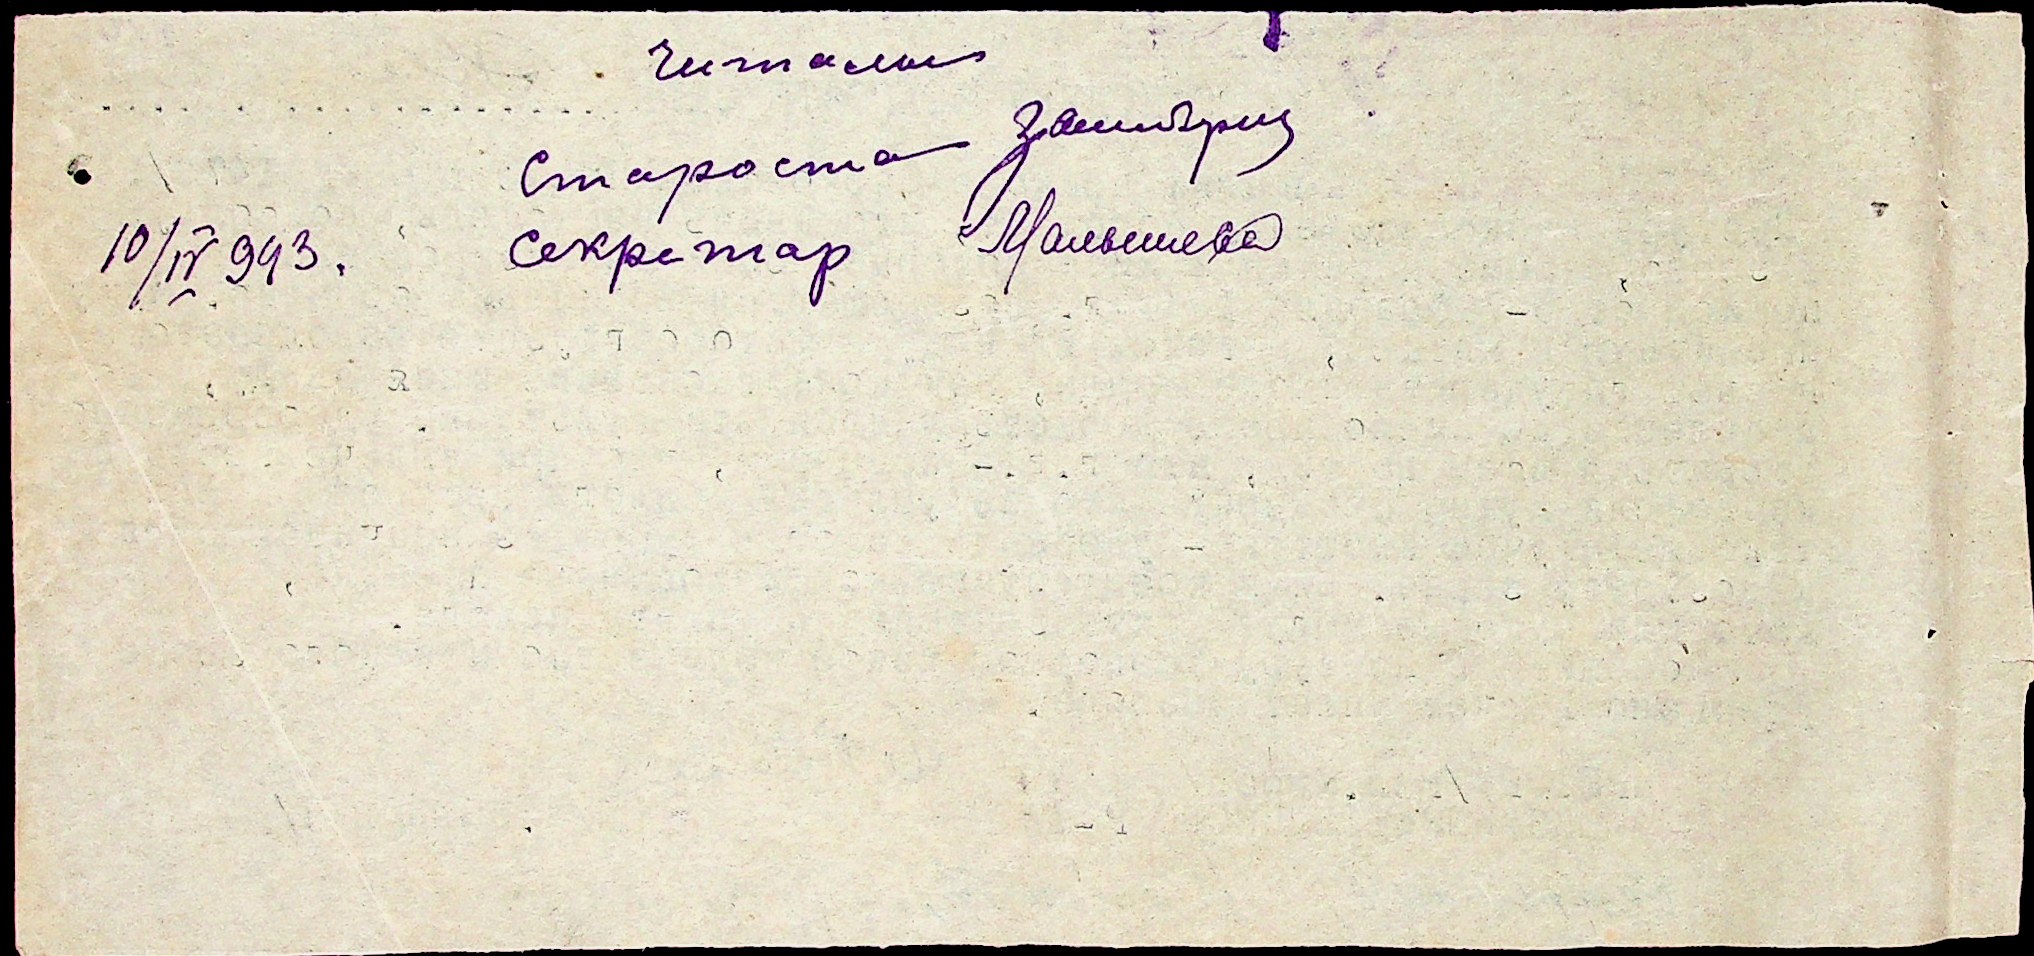 Читали
Староста
10/IV 943. Секретар Малышева